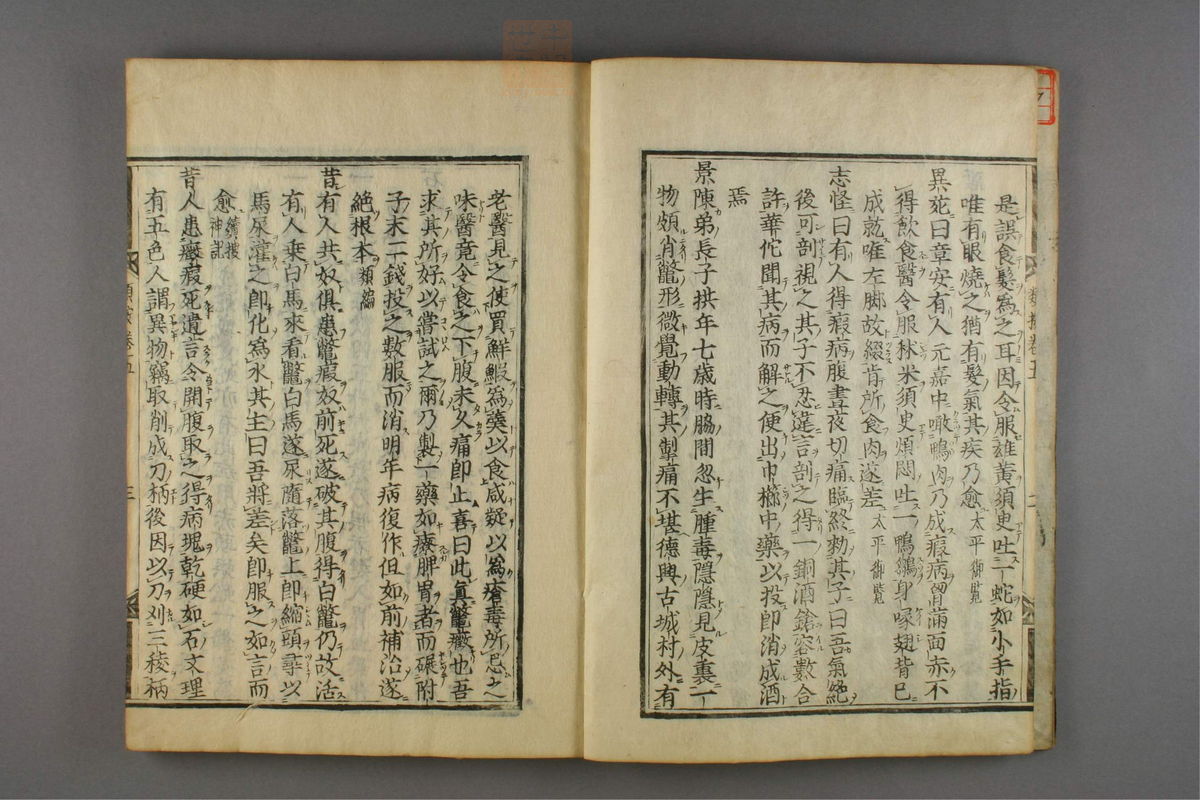 是誤食髮為之耳因令服雄黃須臾吐一蛇如小手指
唯有眼燒之猶有髮氣其疾乃愈太平御覽
異苑曰章安有人元嘉中噉鴨肉乃成瘕病胷滿面赤不
得飲食醫令服秫米須臾煩悶吐一鴨鶵身喙翅皆已
成就唯左脚故綴昔所食肉遂差太平御覽
志怪曰有人得瘕病腹晝夜切痛臨終勑其子曰吾氣絕
後可剖視之其子不忍違言剖之得一銅酒鎗容數合
許華佗聞其病而解之便出巾櫛中藥以投即消成酒
焉
景陳弟長子拱年七歳時脇間忽生腫毒隱隱見皮裏一
物頗肖鼈形微覺動轉其掣痛不堪德興古城村外有
老醫見之使買鮮鰕為羹以食咸疑以為瘡毒所忌之
味醫竟令食之下腹未久痛即止喜曰此真鼈癥也吾
求其所好以嘗試之爾乃製一藥如療脾胃者而碾附
子末二錢投之數服而消明年病復作但如前補治遂
絕根本類編
昔有人共奴俱患鼈瘕奴前死遂破其腹得白鼈仍故活
有人乘白馬來看鼈白馬遂尿隨落鼈上即縮頭尋以
馬尿灌之即化為水其主曰吾將差矣即服之如言而
愈續搜神記
昔人患癥瘕死遺言令開腹取之得病塊乾硬如石文理
有五色人謂異物竊取削成刀柄後因以刀刈三稜柄
卷五
三